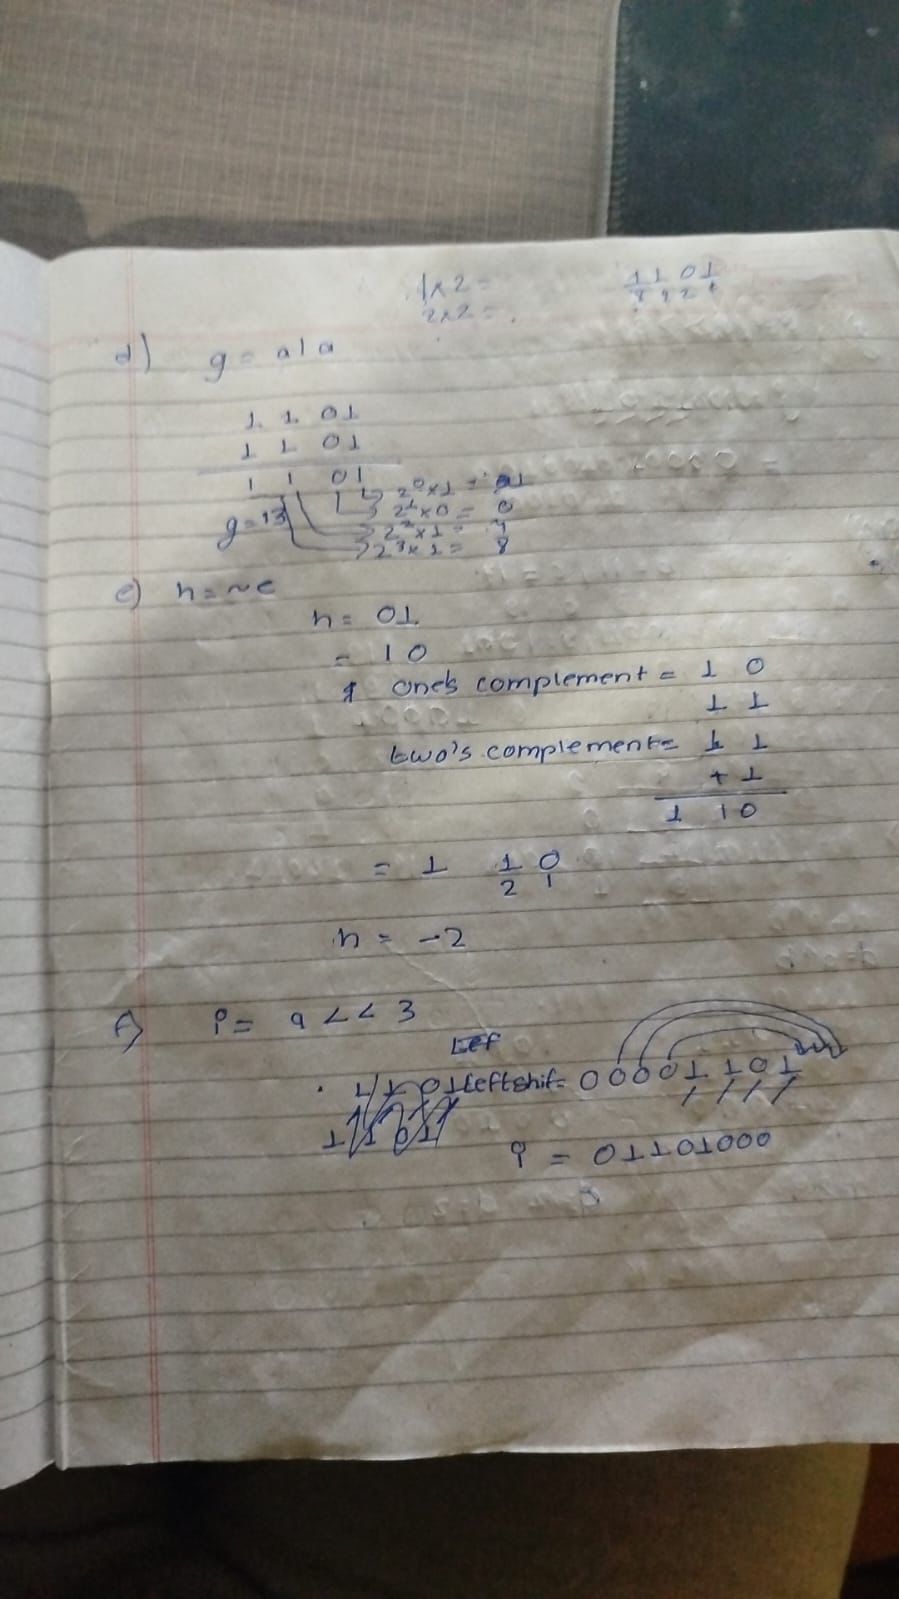 1x2=
2x2=
1 1 0 1
8 4 2 1
d) g = a|a
1 1 01
1 1 01
1 1 01
2⁰x1 = 1
2¹x0 = 0
g=13
2²x1 = 4
2³x1 = 8
e) h = ~e
h = 01
= 10
one's complement = 1 0
1 1
two's complement= 1 1
+ 1
1 10
= 1 1 0
2 1
h = -2
f) i = a << 3
Lef
1101 Leftshif= 00001101
1101
i = 01101000